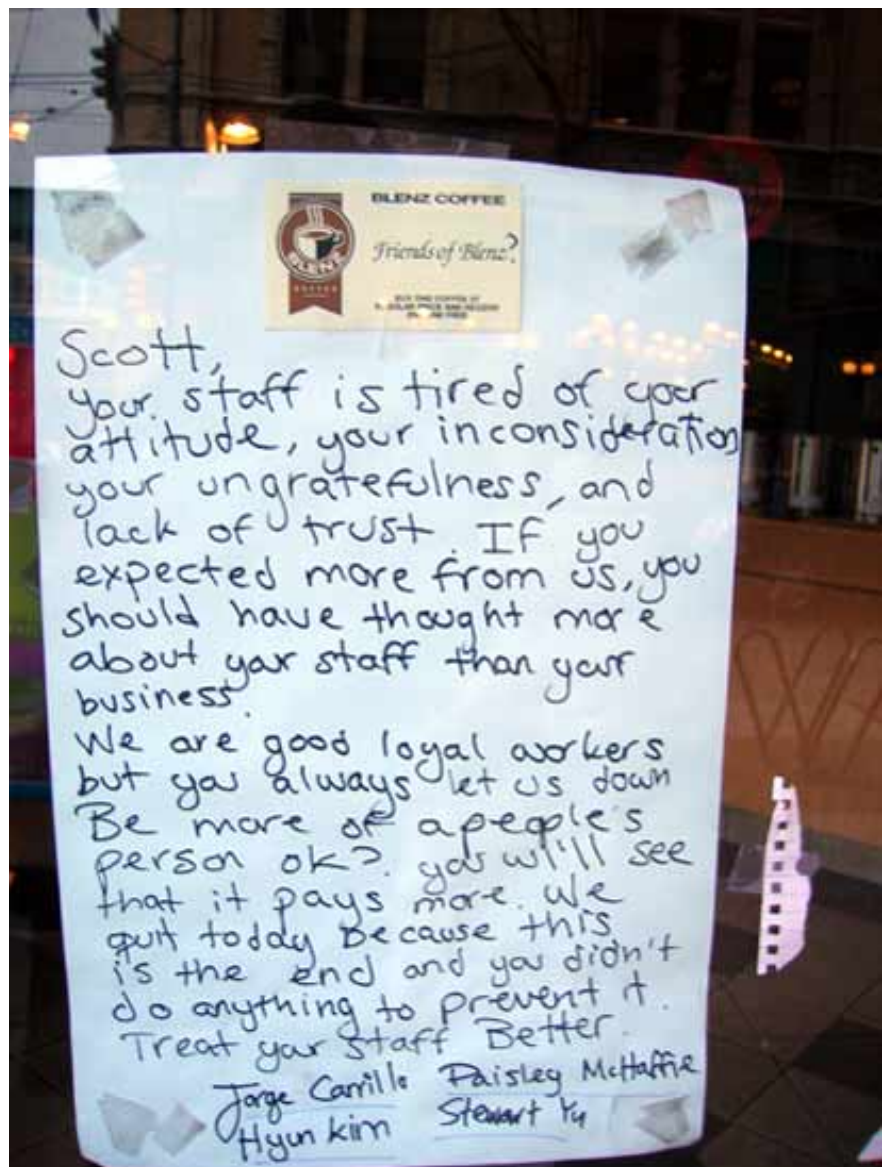 BLENZ COFFEE
Friends of Blenz?
BLENZ
COFFEE
Scott,
your staff is tired of your
attitude, your inconsideration
your ungratefulness, and
lack of trust. If you
expected more from us, you
should have thought more
about your staff than your
business.
We are good loyal workers
but you always let us down
Be more of a people's
person ok? you wi'll see
that it pays more. We
quit today Because this
is the end and you didn't
do anything to prevent it.
Treat your staff Better.
Jorge Carrillo Paisley McHaffie
Hyun Kim Stewart Yu